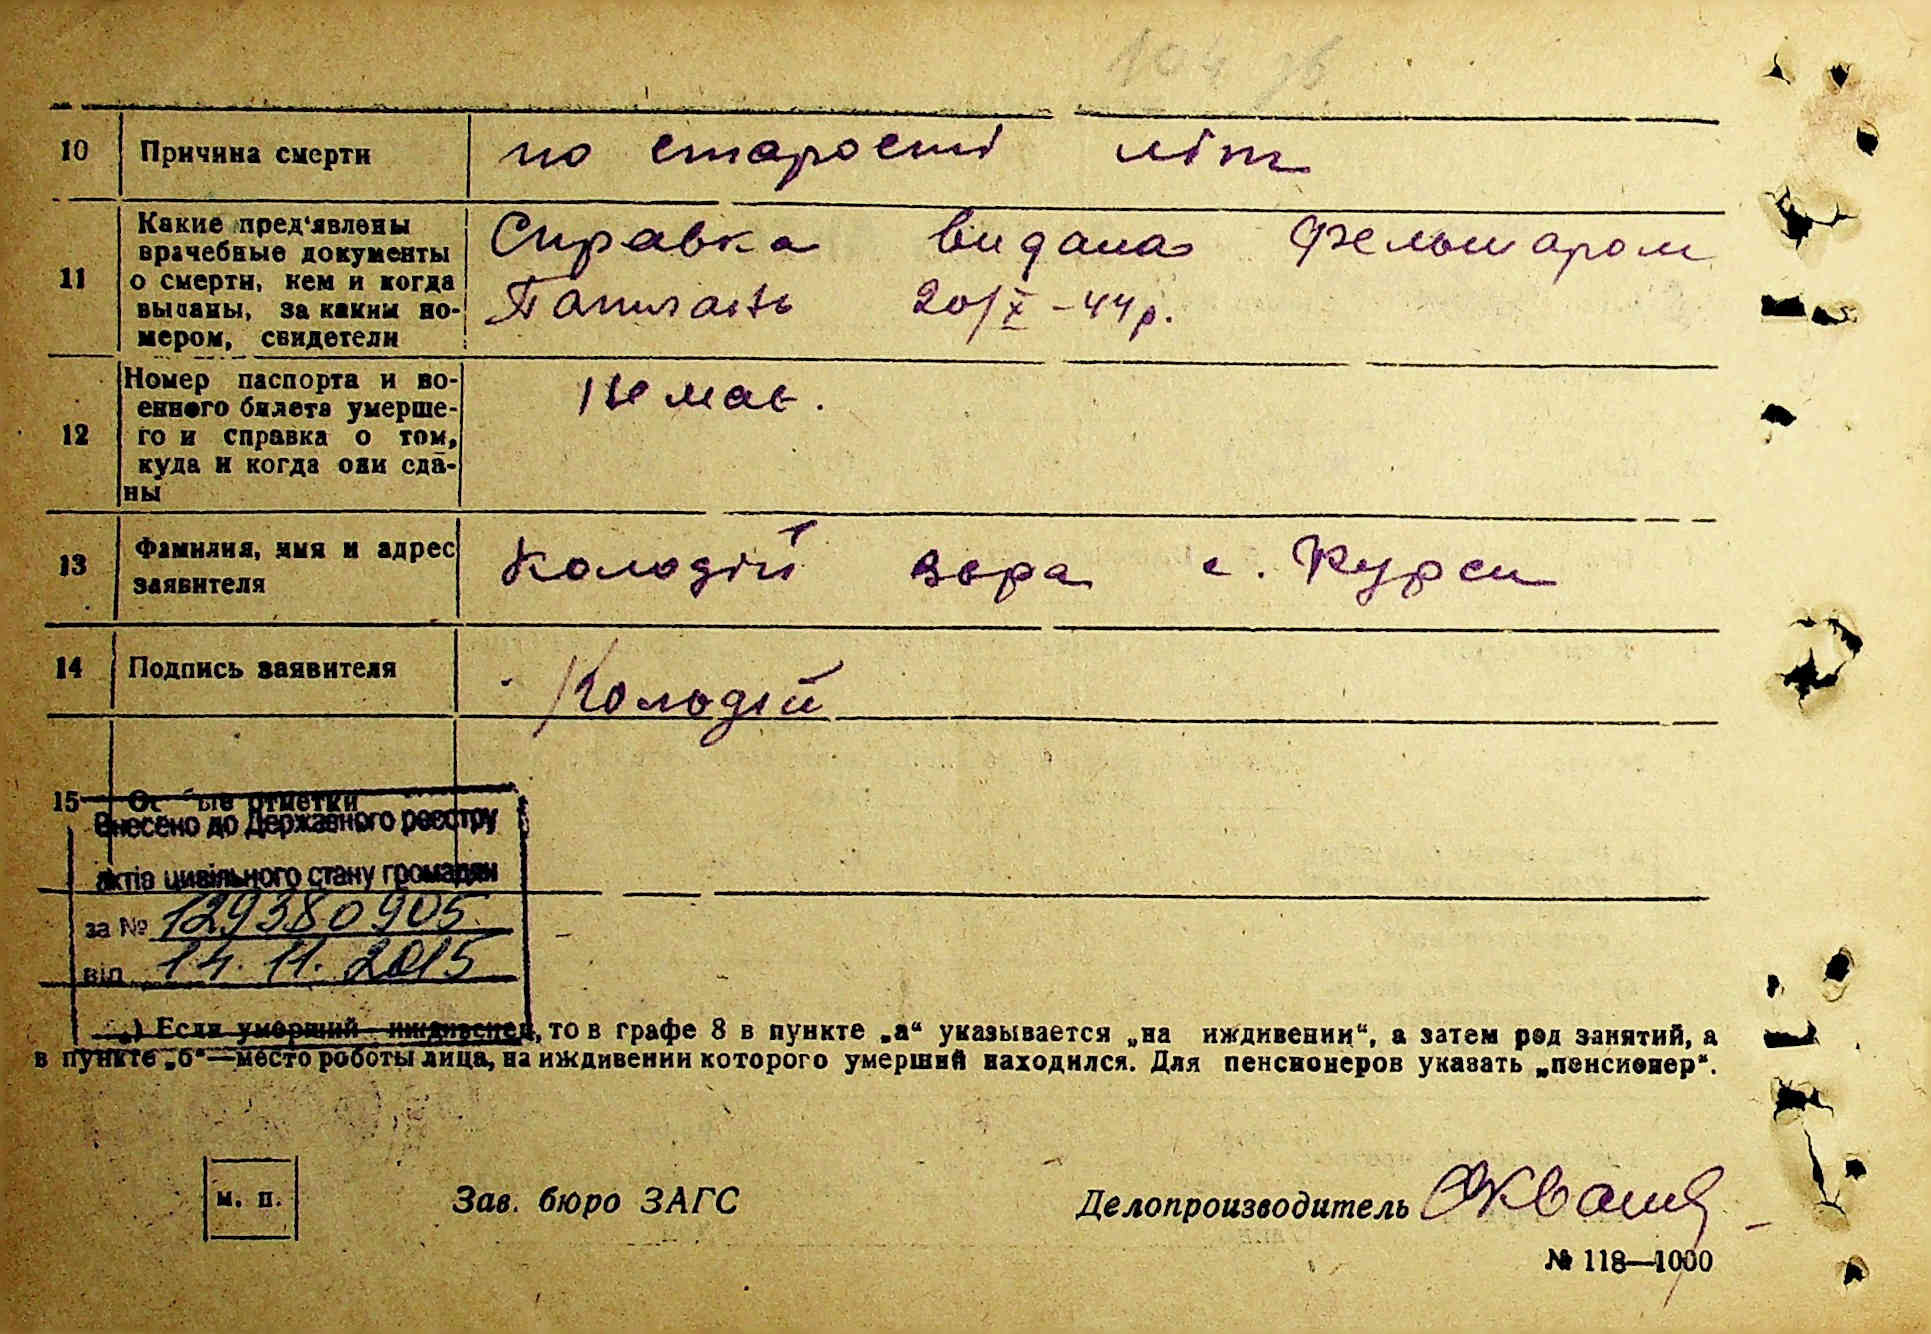 104 зв
10 Причина смерти по старості літ
11 Какие пред'явлены врачебные документы о смерти, кем и когда выданы, за каким номером, свидетели
Справка видана фельшаром
20/X - 44 р.
12 Номер паспорта и во-
енного билета умерше-
го и справка о том,
куда и когда они сда-
ны
Немає.
13 Фамилия, имя и адрес
заявителя
Колодій Вера с. Курси
14 Подпись заявителя Колодій
15 Особые отметки
Внесено до Державного реєстру
актів цивільного стану громадян
за № 129380905
від 14.11.2015
*) Если умерший иждивенец, то в графе 8 в пункте „а“ указывается „на иждивении“, а затем род занятий, а
в пункте „б“—место роботы лица, на иждивении которого умерший находился. Для пенсионеров указать „пенсионер“.
м. п. Зав. бюро ЗАГС Делопроизводитель
№ 118—1000